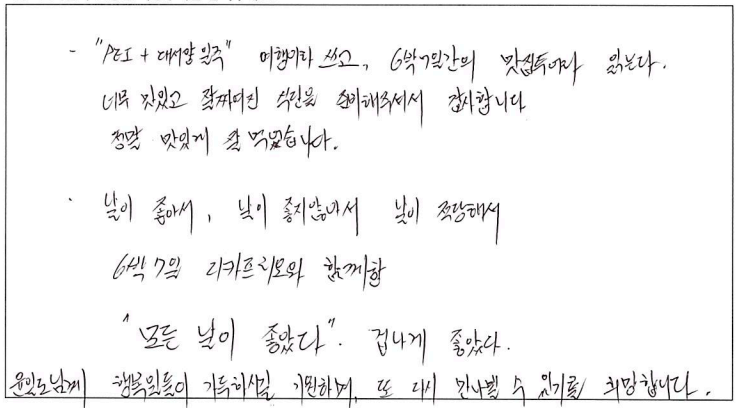 - "PEI + 대서양 일주" 여행이라 쓰고, 6박7일간의 맛집투어라 읽는다.
너무 맛있고 잘짜여진 식단을 준비해주셔서 감사합니다
정말 맛있게 잘 먹었습니다.
· 날이 좋아서, 날이 좋지않아서 날이 적당해서
6박 7일 리카프리오와 함께한
"모든 날이 좋았다". 겁나게 좋았다.
행복일들이 가득하시길 기원하며, 또 다시 만나뵐 수 있기를 희망합니다.